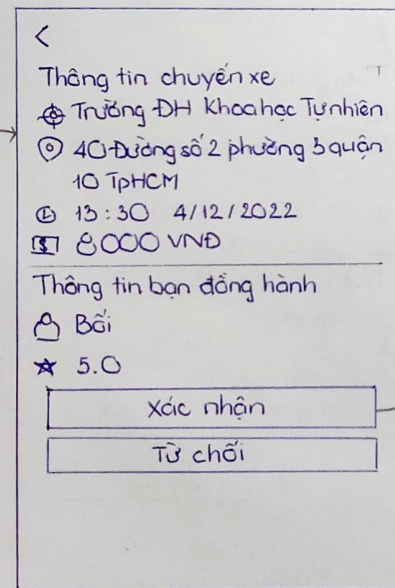 <
Thông tin chuyến xe
Trường ĐH Khoa học Tự nhiên
40 Đường số 2 phường 3 quận
10 TpHCM
13:30 4/12/2022
$ 8000 VNĐ
Thông tin bạn đồng hành
Bối
5.0
Xác nhận
Từ chối